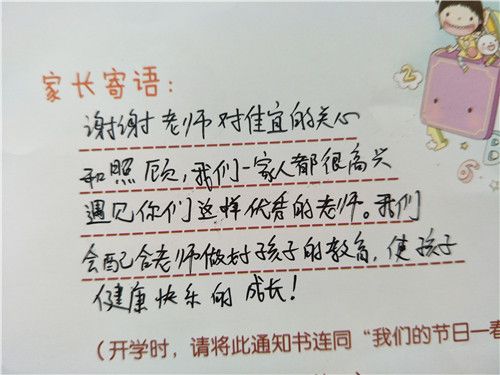 家长寄语：
谢谢老师对佳宜的关心
和照顾，我们一家人都很高兴
遇见你们这样优秀的老师。我们
会配合老师做好孩子的教育，使孩子
健康快乐的成长！
（开学时，请将此通知书连同“我们的节日—春